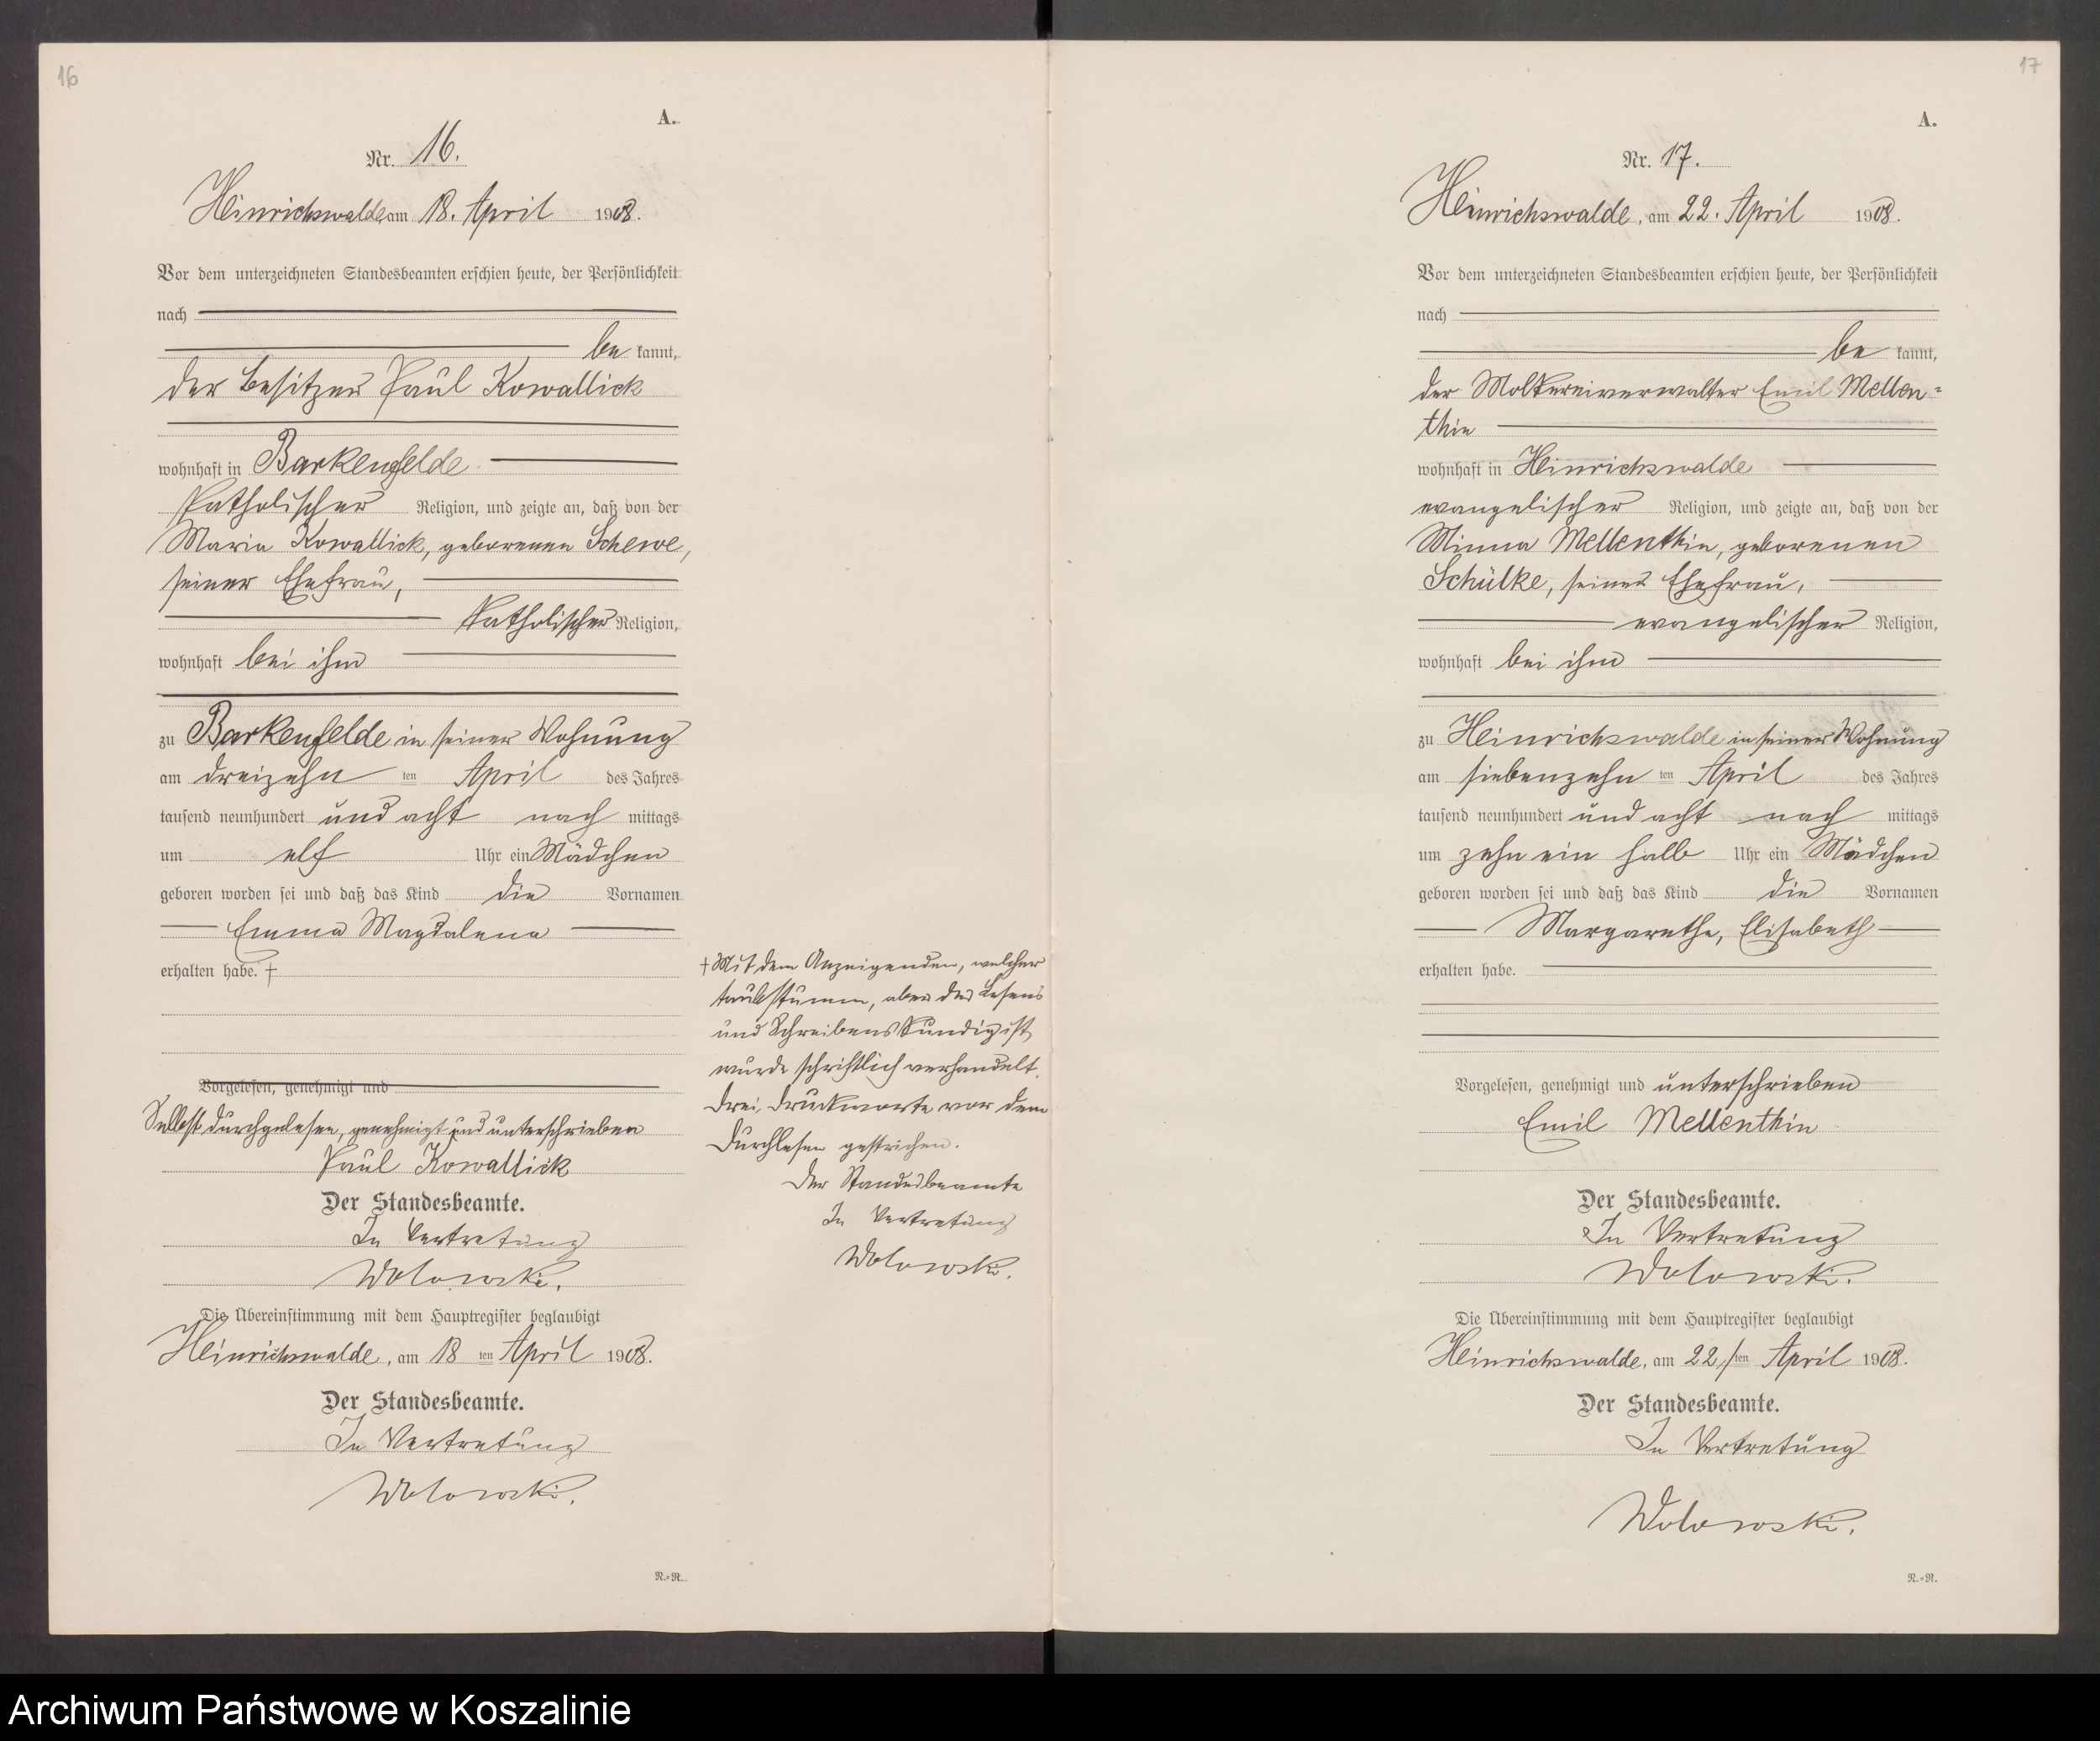 16
A.
Nr. 16.
Heinrichswalde, am 18. April 1908.
Vor dem unterzeichneten Standesbeamten erschien heute, der Persönlichkeit
nach
be kannt,
der Besitzer Paul Kowallick
wohnhaft in Barkenfelde
katholischer Religion, und zeigte an, daß von der
Maria Kowallick, geborenen Schewe,
seiner Ehefrau,
katholischer Religion,
wohnhaft bei ihm
zu Barkenfelde in seiner Wohnung
am dreizehn ten April des Jahres
tausend neunhundert und acht nach mittags
um elf Uhr ein Mädchen
geboren worden sei und daß das Kind die Vornamen
Emma Magdalena
erhalten habe. +
Vorgelesen, genehmigt und
Selbst durchgelesen, genehmigt und unterschrieben
Paul Kowallick
Der Standesbeamte.
In Vertretung
Wolowski.
Die Übereinstimmung mit dem Hauptregister beglaubigt
Heinrichswalde, am 18 ten April 1908.
Der Standesbeamte.
In Vertretung
Wolowski.
N.=R.
+ Mit dem Anzeigenden, welcher
taubstumm, aber des Lesens
und Schreibens kundig ist,
wurde schriftlich verhandelt.
Drei Druckworte vor dem
Durchlesen gestrichen.
Der Standesbeamte
In Vertretung
Wolowski.
17
A.
Nr. 17.
Heinrichswalde, am 22. April 1908.
Vor dem unterzeichneten Standesbeamten erschien heute, der Persönlichkeit
nach
be kannt,
der Molkereiverwalter Emil Mellen=
thin
wohnhaft in Heinrichswalde
evangelischer Religion, und zeigte an, daß von der
Minna Mellenthin, geborenen
Schülke, seiner Ehefrau,
evangelischer Religion,
wohnhaft bei ihm
zu Heinrichswalde in seiner Wohnung
am siebenzehn ten April des Jahres
tausend neunhundert und acht nach mittags
um zehn ein halb Uhr ein Mädchen
geboren worden sei und daß das Kind die Vornamen
Margarethe, Elisabeth
erhalten habe.
Vorgelesen, genehmigt und unterschrieben
Emil Mellenthin
Der Standesbeamte.
In Vertretung
Wolowski.
Die Übereinstimmung mit dem Hauptregister beglaubigt
Heinrichswalde, am 22./ten April 1908.
Der Standesbeamte.
In Vertretung
Wolowski.
N.=R.
Archiwum Państwowe w Koszalinie